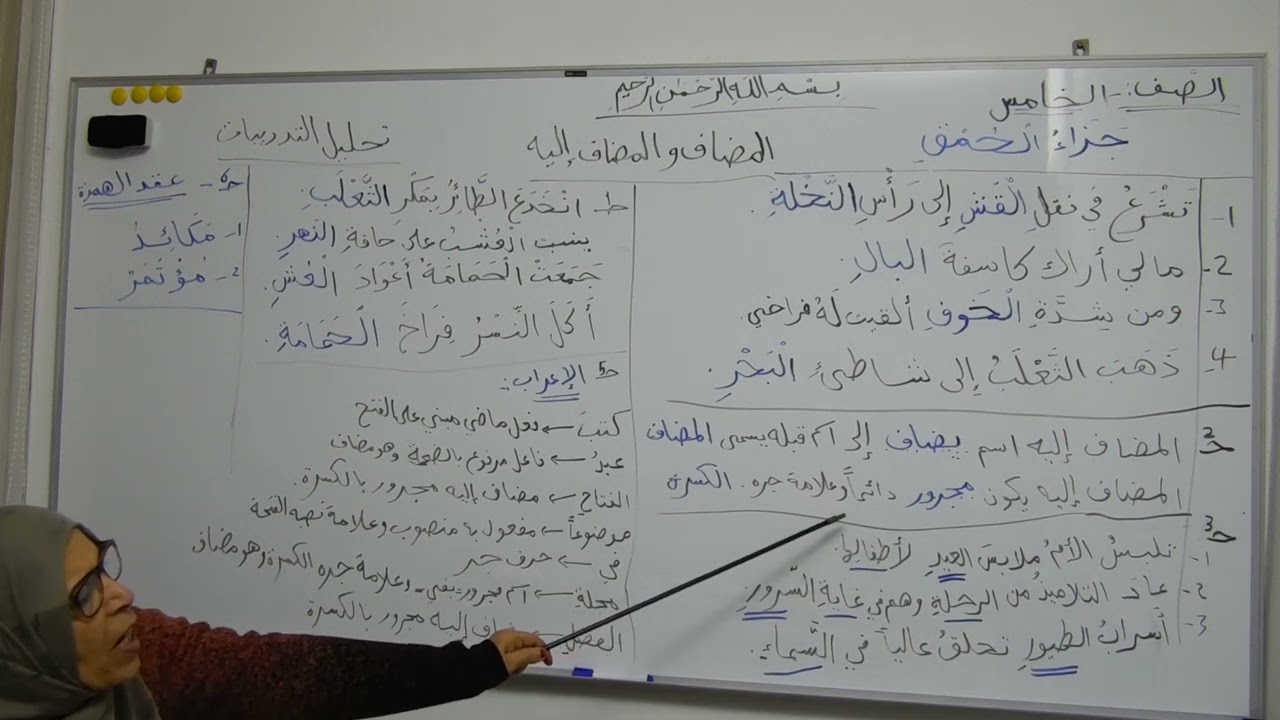 بسم الله الرحمن الرحيم
الصَّف:- الخامس
جَزَاءُ الْحُمْقِ
المضاف والمضاف إليه
تحليل التدريبات
1- تَشْرَعُ في نقلِ الْقَشِ إلى رَأْسِ النَّخْلَةِ.
2- ما لي أراك كاسفةَ البالِ.
3- ومن شِدَّةِ الْخَوفِ ألقيت لَهُ فراخي.
4- ذَهَبَ الثَّعْلَبُ إلى شاطئِ الْبَحْرِ.
ح2 المضاف إليه اسم يضاف إلى اسم قبله يسمى المضاف
المضاف إليه يكون مجرور دائماً وعلامة جره. الكسرة
ح3
1- تلبسُ الأمُ ملابسَ العيدِ لأطفالِها.
2- عادَ التلاميذُ من الرحلةِ وهم في غايةِ السّرورِ.
3- أسرابُ الطيورِ تحلقُ عالياً في السَّماءِ.
ط- انْخَدَعَ الطَّائِرُ بِمَكَرِ الثَّعْلَبِ.
ينبت العُشْبُ على حافةِ النهرِ.
جَمَعَتْ الْحَمَامَةُ أَعْوَادَ الْعُشِ.
أَكَلَ النَّسْرُ فِرَاخَ الْحَمَامَةِ.
ح5 الإعراب:
كتبَ ← فعل ماضي مبني على الفتح
عبدُ ← فاعل مرفوع بالضمة وهو مضاف
الفتاح ← مضاف إليه مجرور بالكسرة.
موضوعاً ← مفعول به منصوب وعلامة نصبه الفتحة
في ← حرف جر
مجلة ← اسم مجرور بفي وعلامة جره الكسرة وهو مضاف
الفصلِ ← إليه مجرور بالكسرة
ح6- عقد الهمزة
1- مَكَائِدُ
2- مُؤْتَمَرْ